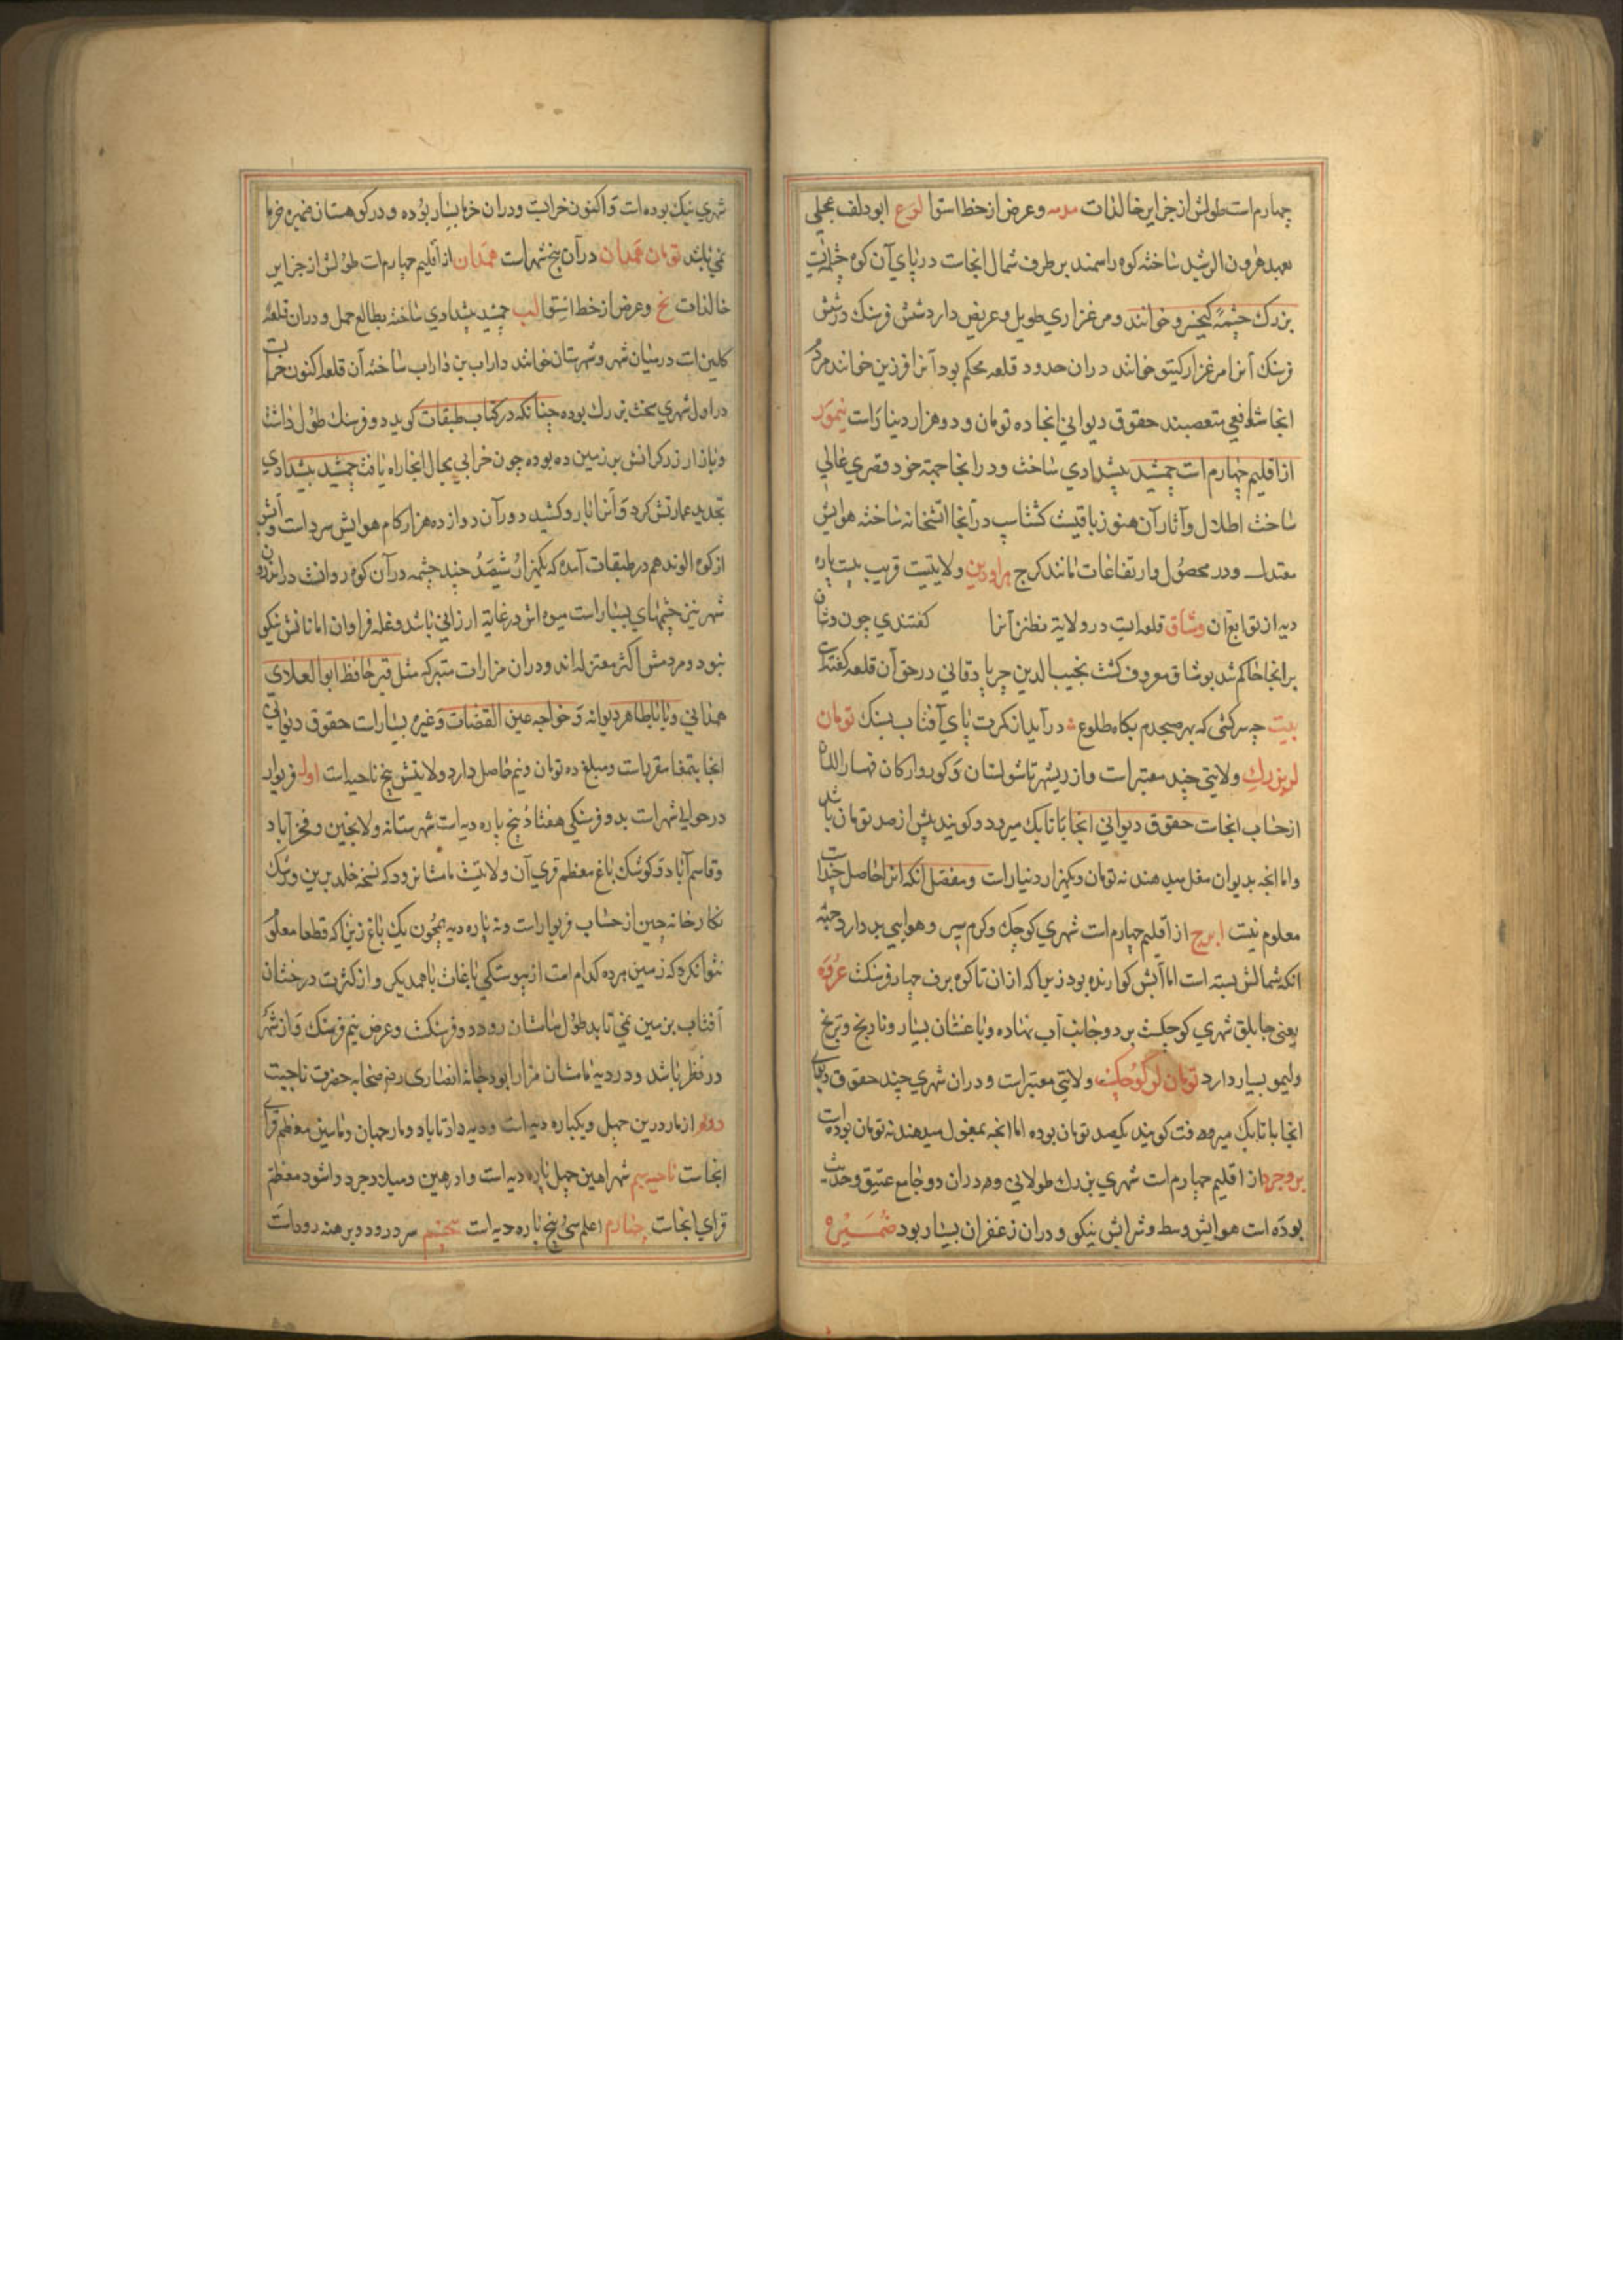 چهارم است طولش از جزایر خالدات مدمه و عرض از خط استوا لوع ابودلف عجلی
بعهد هرون الرشید ساخته کوه راسمند بر طرف شمال انجاست در پای آن کوه چشمه‌ایست
بزرك چشمه کیخسرو خوانند و مرغزاری طویل و عریض دارد شش فرسنك در شش
فرسنك آنرا مرغزار کیتو خوانند دران حدود قلعه محکم بود آنرا فرزین خوانند مردم
انجا شافعی متعصبند حقوق دیوانی انجا ده تومان و دو هزار دینارست نیمور
از اقلیم چهارم است جمشید پیشدادی ساخت و در انجا جهة خود قصری عالی
ساخت اطلال و آثار آن هنوز باقیست کشتاسپ در آنجا اتشخانه ساخته هوایش
معتدل و در محصول و ارتفاعات مانند کرج مراودین ولایتیست قریب بیست پاره
دیه از توابع آن وشاق قلعه‌ایست در ولایة نطنز آنرا کفتندی چون وشاق
بر انجا حاکم شد بوشاق معروف کشت نجیب الدین جربادقانی در حق آن قلعه کفته
بیت چه سرکشی که بهر صبحدم بکاه طلوع در آید از کمرت پای آفتاب بسنك تومان
لر بزرك ولایتی چند معتبر است و از ریشهر تا شولستان و کوروارکان قهستان
از حساب انجاست حقوق دیوانی انجا با تابك میرود و کویند بیش از صد تومان باشد
و اما انچه بدیوان مغل میدهند نه تومان و یکهزار دینارست و مفصل انکه انرا حاصل چند است
معلوم نیست ایرج از اقلیم چهارم است شهری کوچك و کرم سیر و هوایی بد دارد جهة
انکه شمالش بسته است اما آبش کوارنده بود زیرا که ازان تا کوه برف چهار فرسنکست عروه
یعنی جابلق شهری کوچکست بر دو جانب آب نهاده و باغستان بسیار و نارنج و ترنج
و لیمو بسیار دارد تومان لر کوچك ولایتی معتبر است و دران شهری چند حقوق دیوانی
انجا با تابك میرفت کویند یکصد تومان بوده اما انچه بمغول میدهند نه تومان بوده‌است
بروجرد از اقلیم چهارم است شهری بزرك طولانی و دران دو جامع عتیق و حدیث
بوده است هوایش وسط و شرابش نیکو و دران زعفران بسیار بود ضمسیره
شهری نیك بوده است و اکنون خرابست و دران خرما بسیار بوده و در کوهستان ضیره خرما
نمی‌باشد تومان همدان در آن پنج شهر است همدان از اقلیم چهارم است طولش از جزایر
خالدات نح و عرض از خط استوا لب جمشید پیشدادی ساخته بطالع حمل و دران قلعه
کلین است در میان شهر و شهرستان خوانند داراب بن داراب ساخته آن قلعه اکنون خرابست
در اول شهری سخت بزرك بوده چنانکه در کتاب طبقات کوید دو فرسنك طول داشت
و بازار زرکرانش بر زمین ده بوده چون خرابی بحال انجا راه یافت جمشید پیشدادی
تجدید عمارتش کرد و آنرا بارو کشید دور آن دوازده هزار کام هوایش سرد است و آبش
از کوه الوند هم در طبقات آمده که یکهزار و ششصد چند چشمه در آن کوه روانست در اندرون
شهر نیز چشمهای بسیار است میوه‌اش در غایة ارزانی باشد و غله فراوان اما نانش نیکو
نبود و مردمش اکثر معتزله‌اند و دران مزارات متبرکه مثل قبر حافظ ابوالعلای
همدانی و بابا طاهر دیوانه و خواجه عین القضات و غیره بسیار است حقوق دیوانی
انجا بتمغا مقرر است و مبلغ ده تومان و نیم حاصل دارد ولایتش پنج ناحیه است اول فریوار
در حوالی شهر است بدو فرسنکی هفتاد پنج پاره دیه است شهرستانه و لالجین و فخرآباد
و قاسم آباد و کوشك باغ معظم قری آن ولایتیست ماشانرود که نسخه خلد برین و رشك
نکارخانه چین از حساب فریوار است و نه پاره دیه همچون یك باغ زیرا که قطعا معلوم
نتوان کرد که زمین هر ده کدام است از پیوستکی باغات باهمدیکر و از کثرت درختان
آفتاب بر زمین نمی‌تابد طول ماشان رود دو فرسنکست و عرض نیم فرسنك و از شهر
در نظر باشد و در دیه ماشان مزار ابودجانه انصاری رضی صحابه حضرت ناحیت
دوم ازمادرین چهل و یکپاره دیه است و دیه داداباد و مارجهان و ماسین معظم قرای
انجاست ناحیه سیم شراهین چهل پاره دیه است و ادرهین و میلادجرد و اشود معظم
قرای انجاست چهارم اعلم سی پنج پاره دیه است پنجم سردرود و برهنه رود است